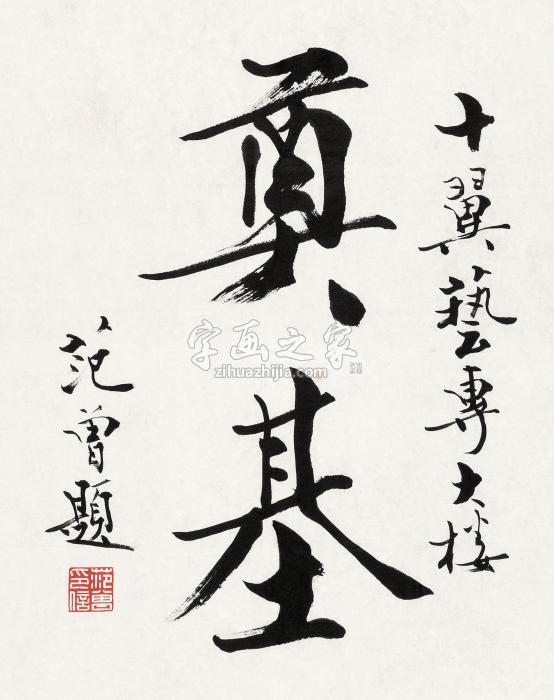 十翼藝專大楼
奠基
范曾題
范曾之信
字画之家
zihuazhijia.com